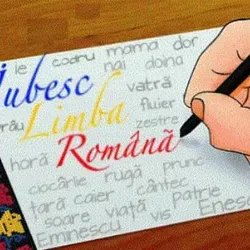 ie codru mama dor
nai doina
Iubesc
vatră
râu Limba fluier
zestre
Română
horă prunc
ciocârlie rugă cântec
țară caier Patrie
soare viață vis Enescu
Eminescu